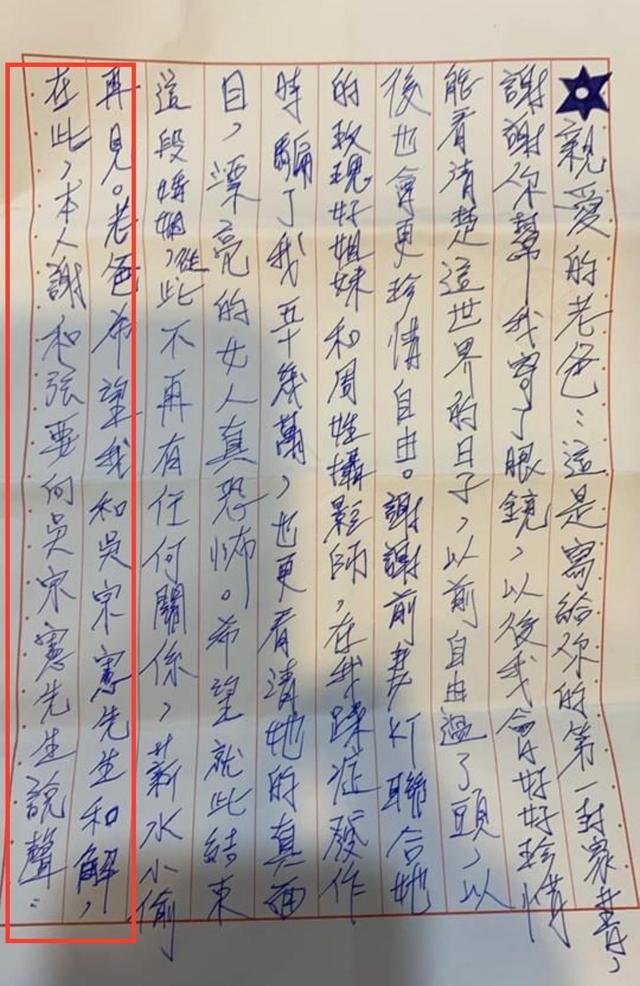 親愛的老爸：這是寫給你的第一封家書，
謝謝你幫我寄了眼鏡，以後我會好好珍惜
能看清楚這世界的日子，以前自由過了頭，以
後也會更珍惜自由。謝謝前妻KT聯合她
的玫瑰好姐妹和周姓攝影師，在我躁症發作
時騙了我五十幾萬，也更看清她的真面
目，漂亮的女人真恐怖。希望就此結束
這段婚姻，從此不再有任何關係，薪水小偷
再見。老爸希望我和吳宗憲先生和解，
在此，本人謝和弦要向吳宗憲先生說聲：